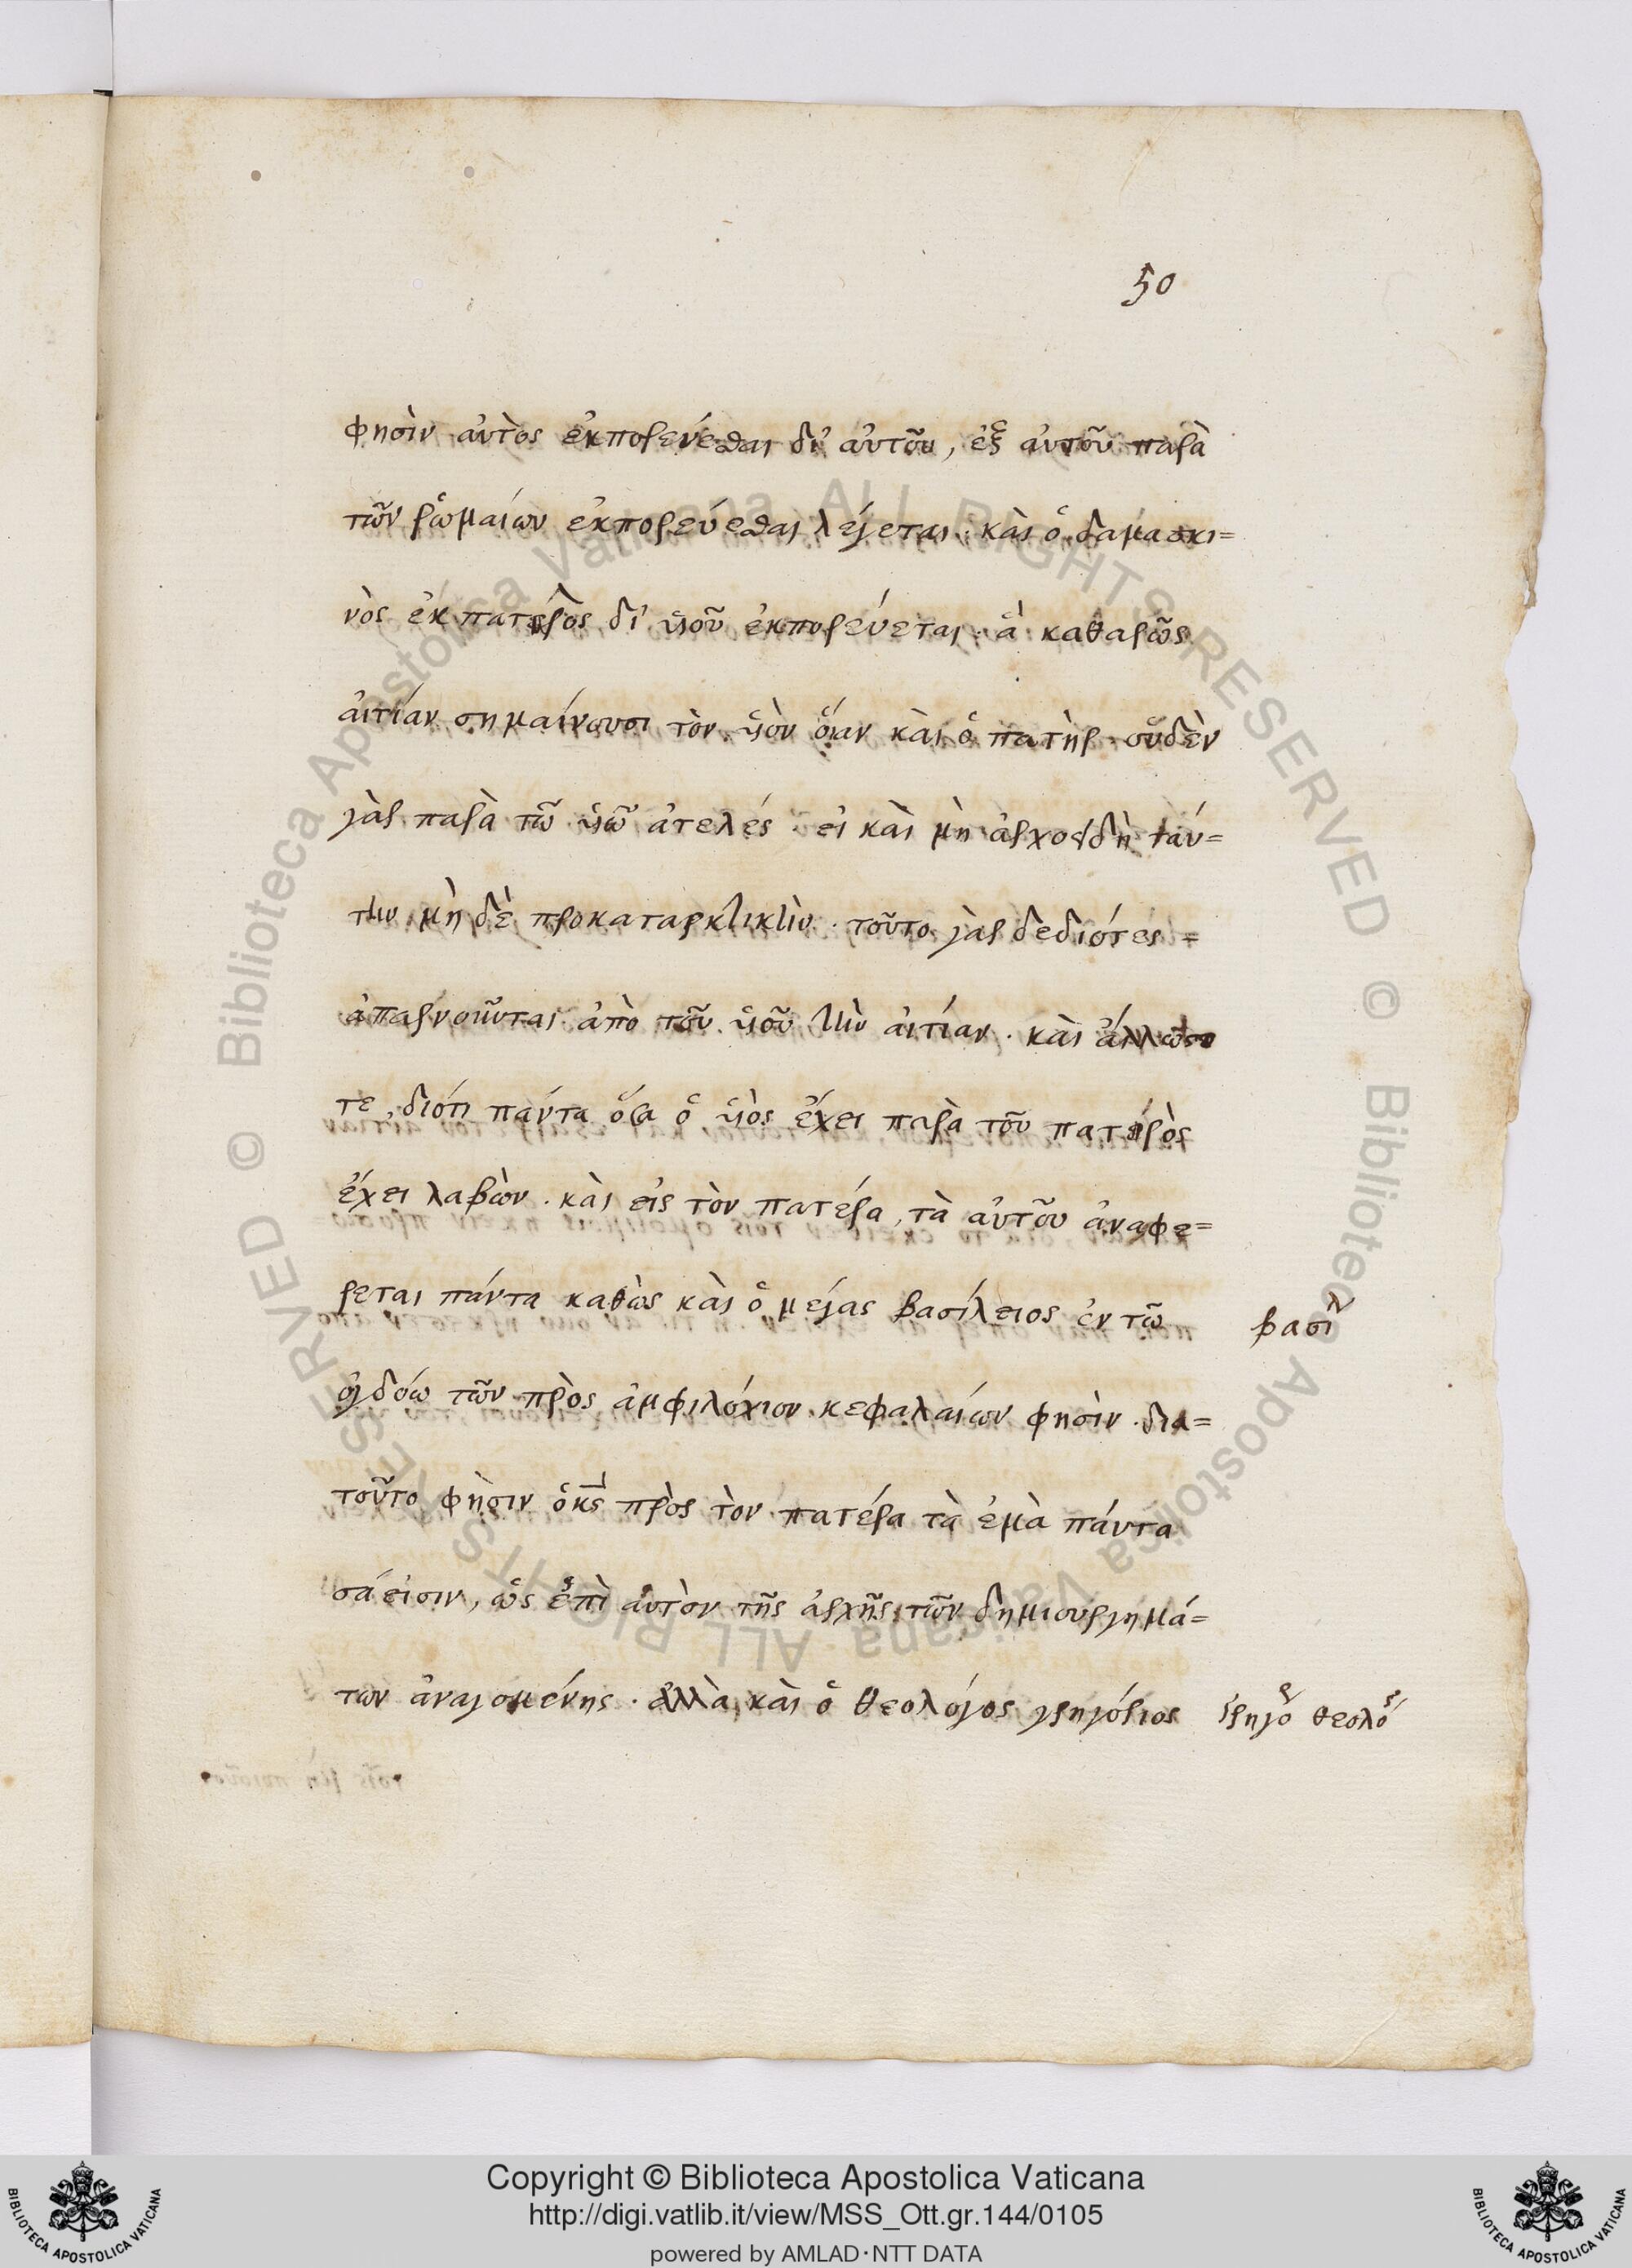 50
φησὶν αὐτὸς ἐκπορεύεσθαι δι' αὐτοῦ, ἐξ αὐτοῦ παρὰ
τῶν ῥωμαίων ἐκπορεύεσθαι λέγεται· καὶ ὁ δαμασκι=
νὸς ἐκ πατρὸς δι' υἱοῦ ἐκπορεύεται· ἃ καθαρῶς
αἰτίαν σημαίνουσι τὸν υἱὸν οἵαν καὶ ὁ πατὴρ οὐδὲν
γὰρ παρὰ τῶ υἱῶ ἀτελές· εἰ καὶ μὴ ἀρχοειδῆ ταύ=
την μὴ δὲ προκαταρκτικὴν· τοῦτο γὰρ δεδιότες =
ἀπαρνοῦνται ἀπὸ τοῦ υἱοῦ τὴν αἰτίαν· καὶ ἄλλως
τε διότι πάντα ὅσα ὁ υἱὸς ἔχει παρὰ τοῦ πατρὸς
ἔχει λαβὼν· καὶ εἰς τὸν πατέρα, τὰ αὐτοῦ ἀναφέ=
ρεται πάντα καθὼς καὶ ὁ μέγας βασίλειος ἐν τῶ
βασιλ
ὀγδόω τῶν πρὸς ἀμφιλόχιον κεφαλαίων φησὶν· δια=
τοῦτο φησιν ὁ κς πρὸς τὸν πατέρα τὰ ἐμὰ πάντα
σά εἰσιν, ὡς ἐπὶ αὐτὸν τῆς ἀρχῆς τῶν δημιουργημά=
των ἀναγομένης· ἀλλὰ καὶ ὁ θεολόγος γρηγόριος
γρηγορ θεολόγ
Copyright © Biblioteca Apostolica Vaticana
http://digi.vatlib.it/view/MSS_Ott.gr.144/0105
powered by AMLAD·NTT DATA
BIBLIOTECA APOSTOLICA VATICANA
BIBLIOTECA APOSTOLICA VATICANA
Biblioteca Apostolica Vaticana ALL RIGHTS RESERVED ©
Biblioteca Apostolica Vaticana ALL RIGHTS RESERVED ©